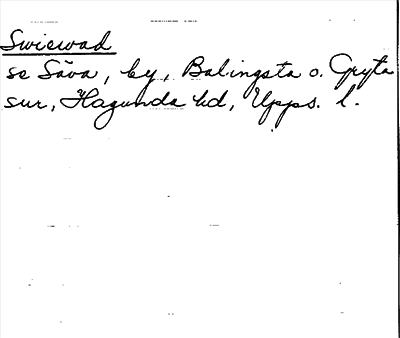 Swiewad
se Säva, by, Balingsta o. Gryta
snr, Hagunda hd, Upps. l.